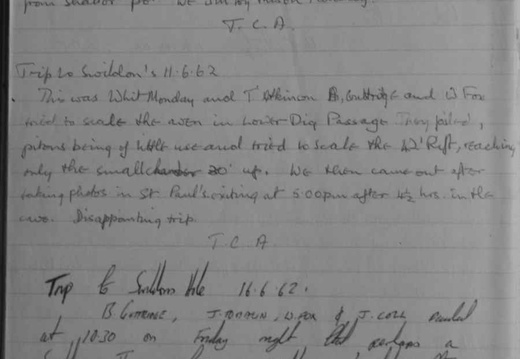 T. C. A.
Trip to Swildon's 11.6.62
This was Whit Monday and T Atkinson B. Guttridge and W Fox
tried to scale the aven in Lower Dig Passage They failed,
pitons being of little use and tried to scale the 42' Rift, reaching
only the small chamber 20' up. We then came out after
taking photos in St. Paul's exiting at 5.00pm after 4½ hrs. in the
cave. Disappointing trip.
T C A
Trip to Swildons Hole 16.6.62.
B. GUTTRIDGE, W. FOX & J. CORK
at 10.30 on Friday night perhaps a